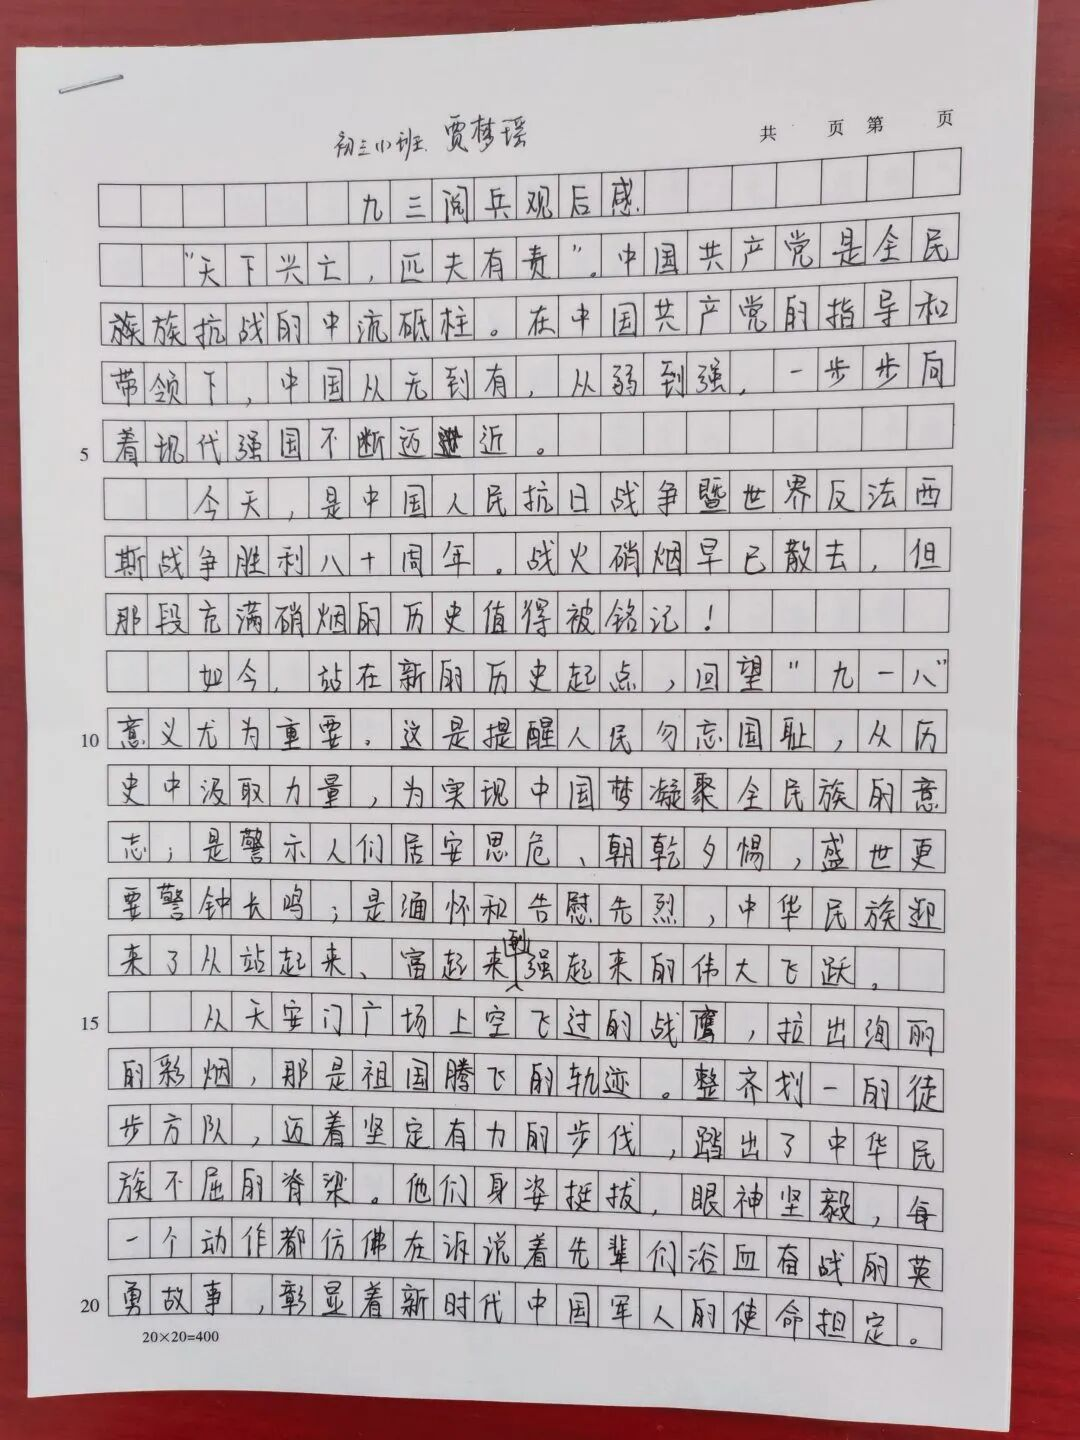 初三小班 贾梦瑶
共 页 第 页
九三阅兵观后感
“天下兴亡，匹夫有责”。中国共产党是全民
族族抗战的中流砥柱。在中国共产党的指导和
带领下，中国从无到有，从弱到强，一步步向
5 着现代强国不断迈进近。
今天，是中国人民抗日战争暨世界反法西
斯战争胜利八十周年。战火硝烟早已散去，但
那段充满硝烟的历史值得被铭记！
如今，站在新的历史起点，回望“九一八”
10 意义尤为重要。这是提醒人民勿忘国耻，从历
史中汲取力量，为实现中国梦凝聚全民族的意
志；是警示人们居安思危、朝乾夕惕，盛世更
要警钟长鸣；是缅怀和告慰先烈，中华民族迎
来了从站起来、富起来到强起来的伟大飞跃。
15 从天安门广场上空飞过的战鹰，拉出绚丽
的彩烟，那是祖国腾飞的轨迹。整齐划一的徒
步方队，迈着坚定有力的步伐，踏出了中华民
族不屈的脊梁。他们身姿挺拔，眼神坚毅，每
一个动作都仿佛在诉说着先辈们浴血奋战的英
20 勇故事，彰显着新时代中国军人的使命担定。
20×20=400